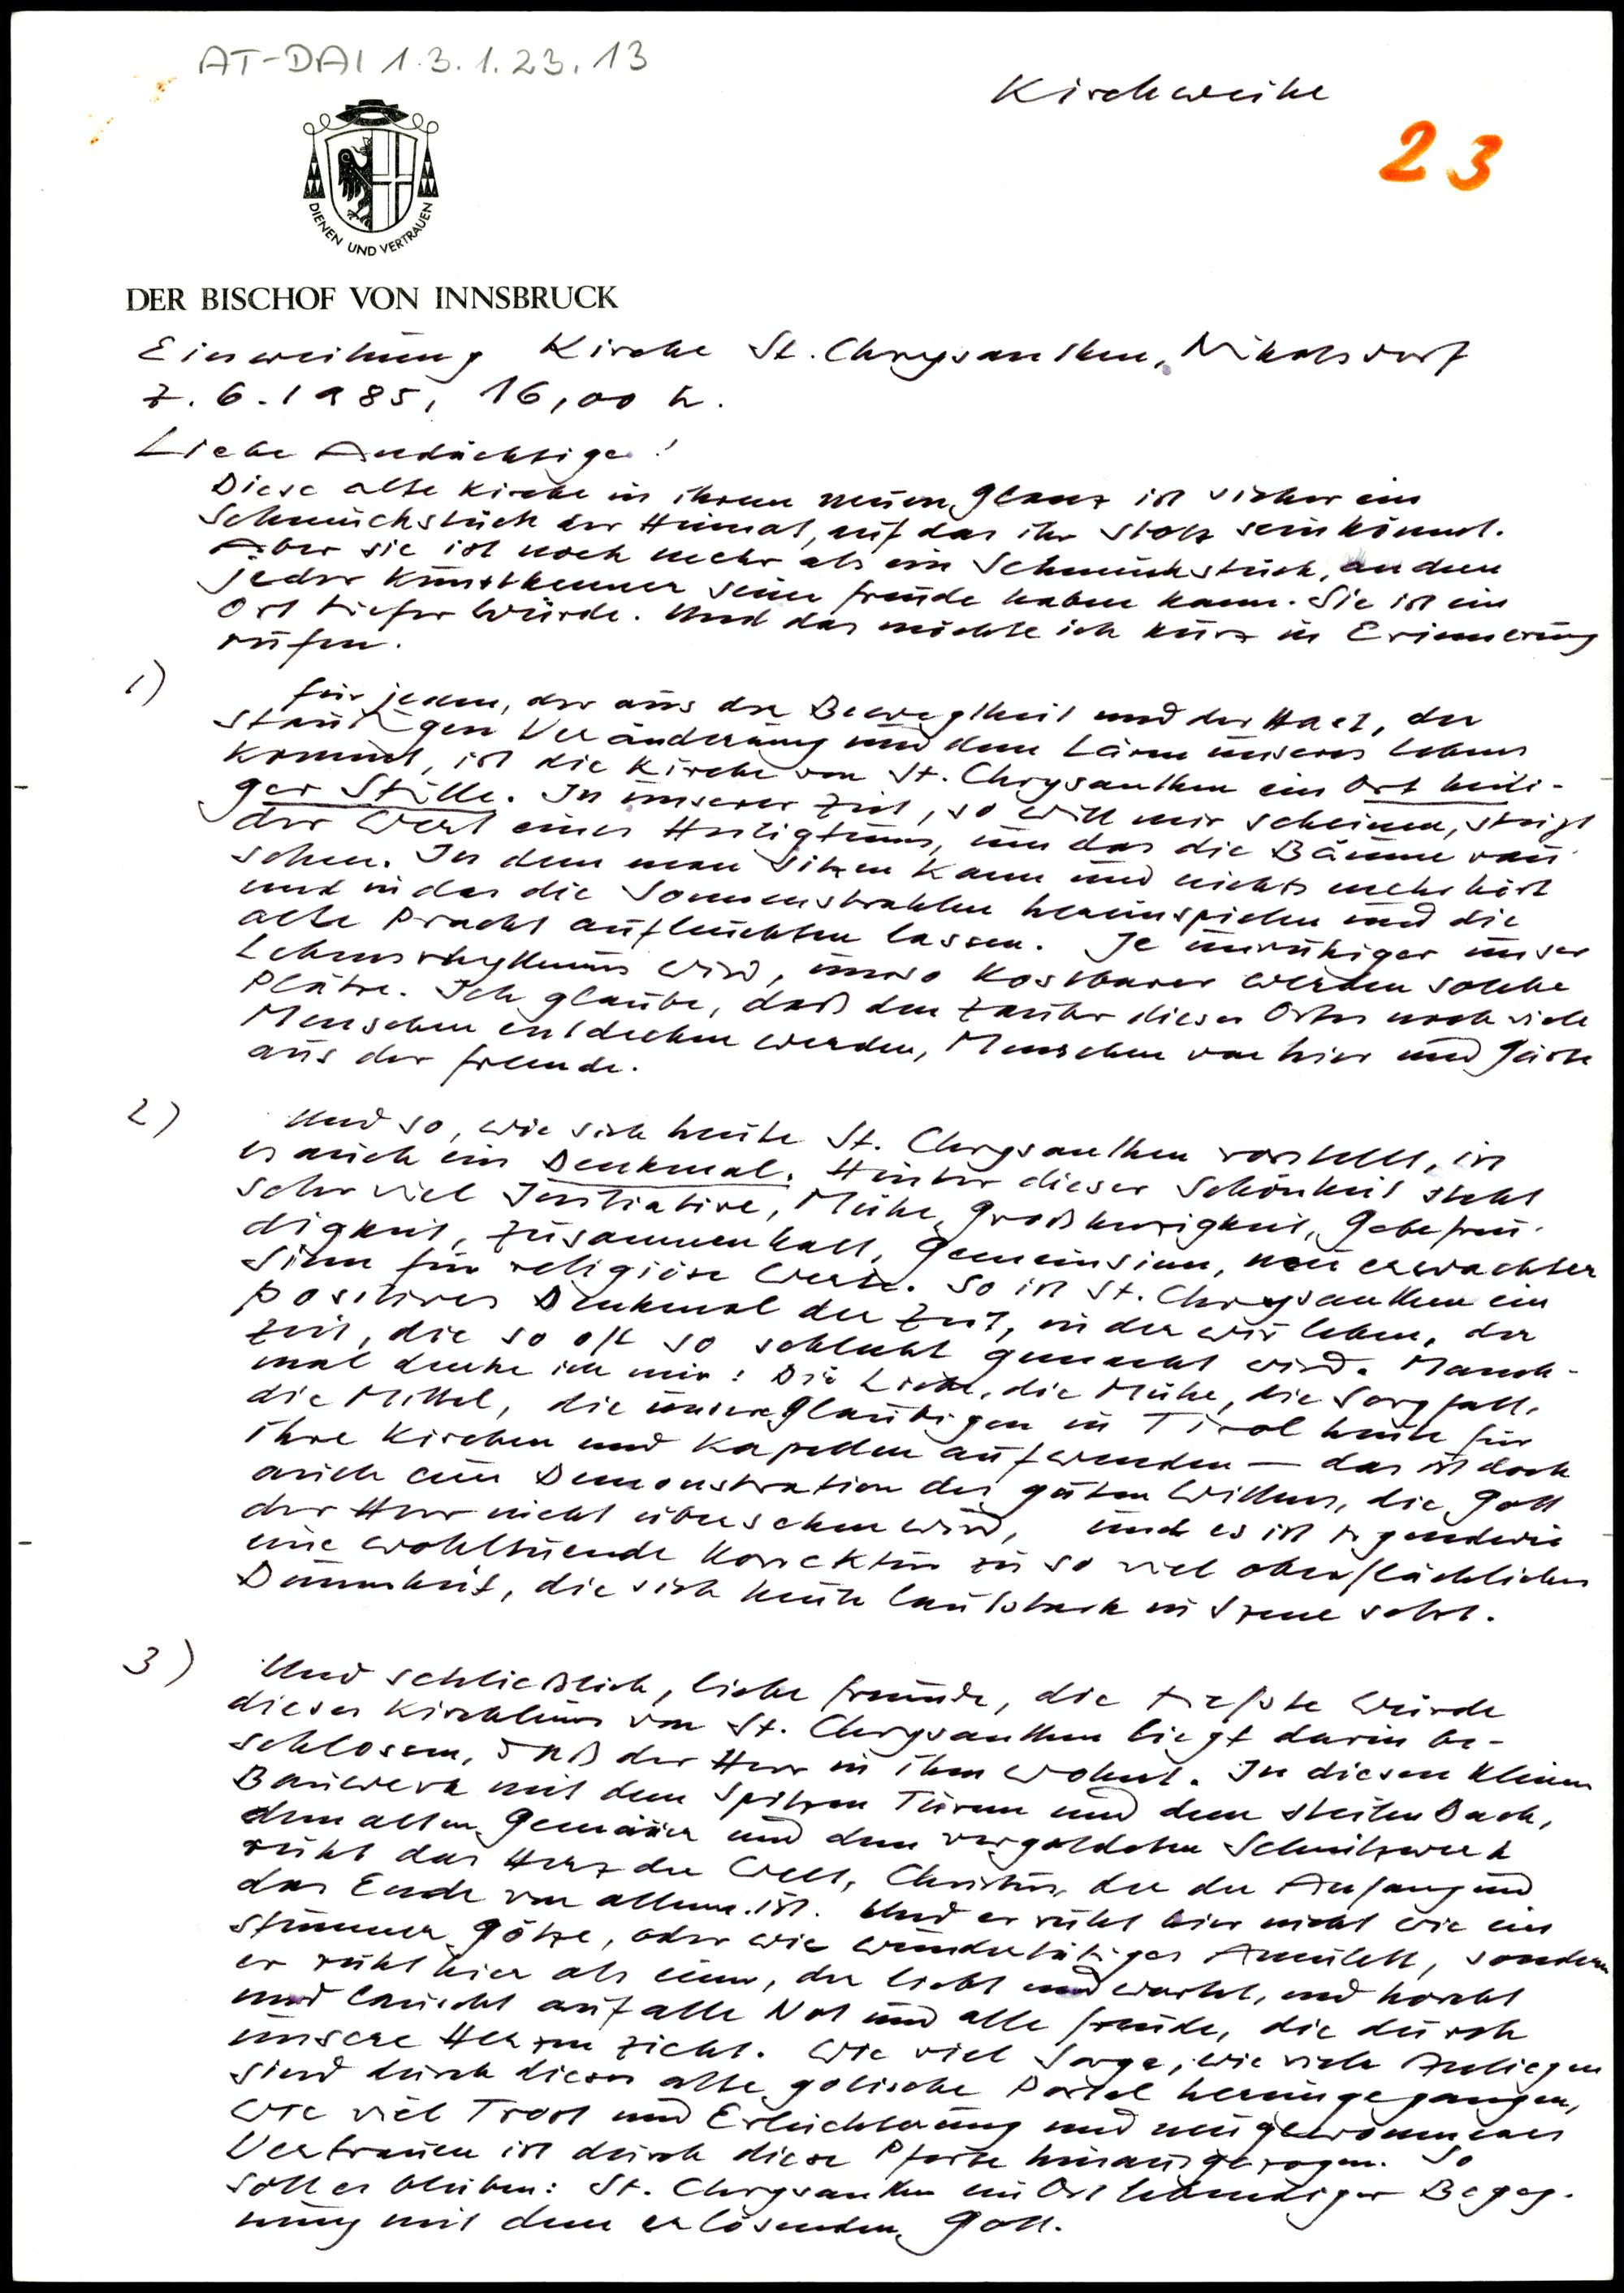 AT-DAI 1.3.1.23.13
Kirchweihe
23
DIENEN UND VERTRAUEN
DER BISCHOF VON INNSBRUCK
Einweihung Kirche St. Chrysanthen, Nikolsdorf
7.6.1985, 16,00 h.
Liebe Andächtige!
Diese alte Kirche in ihrem neuen Glanz ist sicher ein
Schmuckstück der Heimat, auf das ihr stolz sein könnt.
Aber sie ist noch mehr als ein Schmuckstück, an dem
jeder Kunstkenner seine Freude haben kann. Sie ist ein
Ort tiefer Würde. Und das möchte ich kurz in Erinnerung
rufen.
1) Für jeden, der aus der Bewegtheit und der Hast, der
ständigen Veränderung und dem Lärm unseres Lebens
kommt, ist die Kirche von St. Chrysanthen ein Ort heili-
ger Stille. In unserer Zeit, so will mir scheinen, steigt
der Wert eines Heiligtums, um das die Bäume rau-
schen. In dem man sitzen kann und nichts mehr hört
und in das die Sonnenstrahlen hereinspielen und die
alte Pracht aufleuchten lassen. Je unruhiger unser
Lebensrhythmus wird, umso kostbarer werden solche
Plätze. Ich glaube, daß den Zauber dieses Ortes noch viele
Menschen entdecken werden, Menschen von hier und Gäste
aus der Fremde.
2) Und so, wie sich heute St. Chrysanthen vorstellt, ist
es auch ein Denkmal. Hinter dieser Schönheit steht
sehr viel Initiative, Mühe, Großherzigkeit, Gebefreu-
digkeit, Zusammenhalt, Gemeinsinn, neu erwachter
Sinn für religiöse Werte. So ist St. Chrysanthen ein
positives Denkmal der Zeit, in der wir leben, der
Zeit, die so oft so schlecht gemacht wird. Manch-
mal denke ich mir: Die Liebe, die Mühe, die Sorgfalt,
die Mittel, die unsere Gläubigen in Tirol heute für
ihre Kirchen und Kapellen aufwenden — das ist doch
auch eine Demonstration des guten Willens, die Gott
der Herr nicht übersehen wird, und es ist irgendwie
eine wohltuende Korrektur zu so viel oberflächlicher
Dummheit, die sich heute lautstark in Szene setzt.
3) Und schließlich, liebe Freunde, die tiefste Würde
dieses Kirchleins von St. Chrysanthen liegt darin be-
schlossen, daß der Herr in ihm wohnt. In diesem kleinen
Bauwerk mit dem spitzen Turm und dem steilen Dach,
dem alten Gemäuer und dem vergoldeten Schnitzwerk
ruht das Herz der Welt, Christus, der der Anfang und
das Ende von allem ist. Und er ruht hier nicht wie ein
stummer Götze, oder wie wundertätiges Amulett, sondern
er ruht hier als einer, der liebt und wartet, und horcht
und lauscht auf alle Not und alle Freude, die durch
unsere Herzen zieht. Wie viel Sorge, wie viele Anliegen
sind durch dieses alte gotische Portal hereingegangen,
wie viel Trost und Erleichterung und neugewonnenes
Vertrauen ist durch diese Pforte hinausgezogen. So
soll es bleiben: St. Chrysanthen ein Ort lebendiger Begeg-
nung mit dem erlösenden Gott.